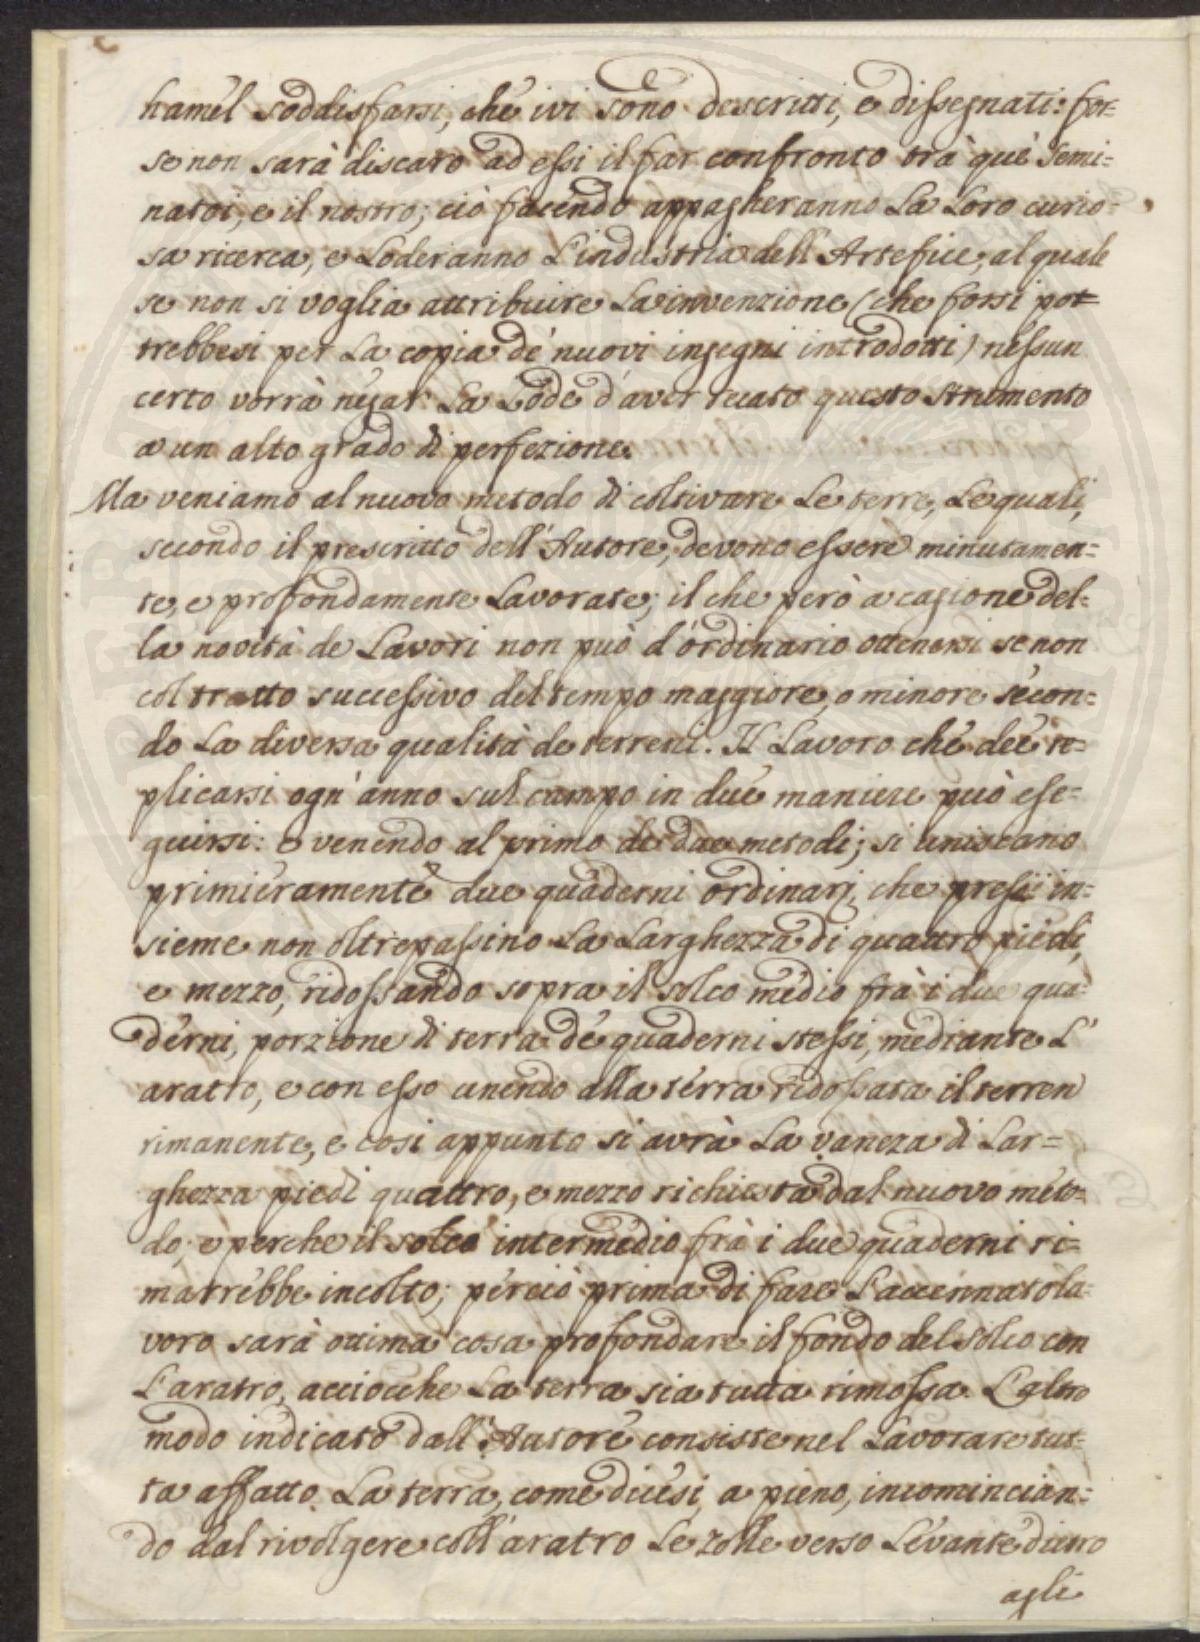 hamel soddisfarsi, che ivi sono descritti, e dissegnati: for=
se non sarà discaro ad essi il far confronto trà què semi=
natoi, e il nostro; ciò facendo appagheranno La Loro curio=
sa ricerca, e Loderanno L'industria dell'Artefice, al quale
se non si voglia attribuire La invenzione (che forsi pot=
trebbesi per La copia de' nuovi ingegni introdotti) nessun
certo vorrà negar La Lode d'aver recato questo strumento
a un alto grado di perfezione.
Ma veniamo al nuovo metodo di coltivare Le terre, Le quali,
secondo il prescritto dell'Autore, devono essere minutamen=
te, e profondamente Lavorate; il che però a cagione del=
la novità de Lavori non può d'ordinario ottenersi se non
col tratto successivo del tempo maggiore, o minore secon=
do La diversa qualità de terreni. Il Lavoro che deè re=
plicarsi ogn'anno sul campo in due maniere può ese=
guirsi: e venendo al primo de due metodi; si uniscano
primieramente due quaderni ordinarj, che presi in=
sieme non oltrepassino La Larghezza di quattro piedi,
e mezzo, ridossando sopra il solco medio frà i due qua=
derni, porzione di terra dè quaderni stessi, mediante L'
aratro, e con esso unendo alla terra ridossata il terren
rimanente, e così appunto si avrà La vaneza di Lar=
ghezza piedi quattro, e mezzo richiesta dal nuovo meto=
do; e perche il solco intermedio frà i due quaderni ri=
marrebbe incolto; perciò prima di fare L'accennato la=
voro sarà ottima cosa profondare il fondo del solco con
L'aratro, acciocche La terra sia tutta rimossa. L'altro
modo indicato dall'Autore consiste nel Lavorare tut=
ta affatto La terra, come dicesi, a pieno, incomincian=
do dal rivolgere coll'aratro Le zolle verso Levante dietro
agli